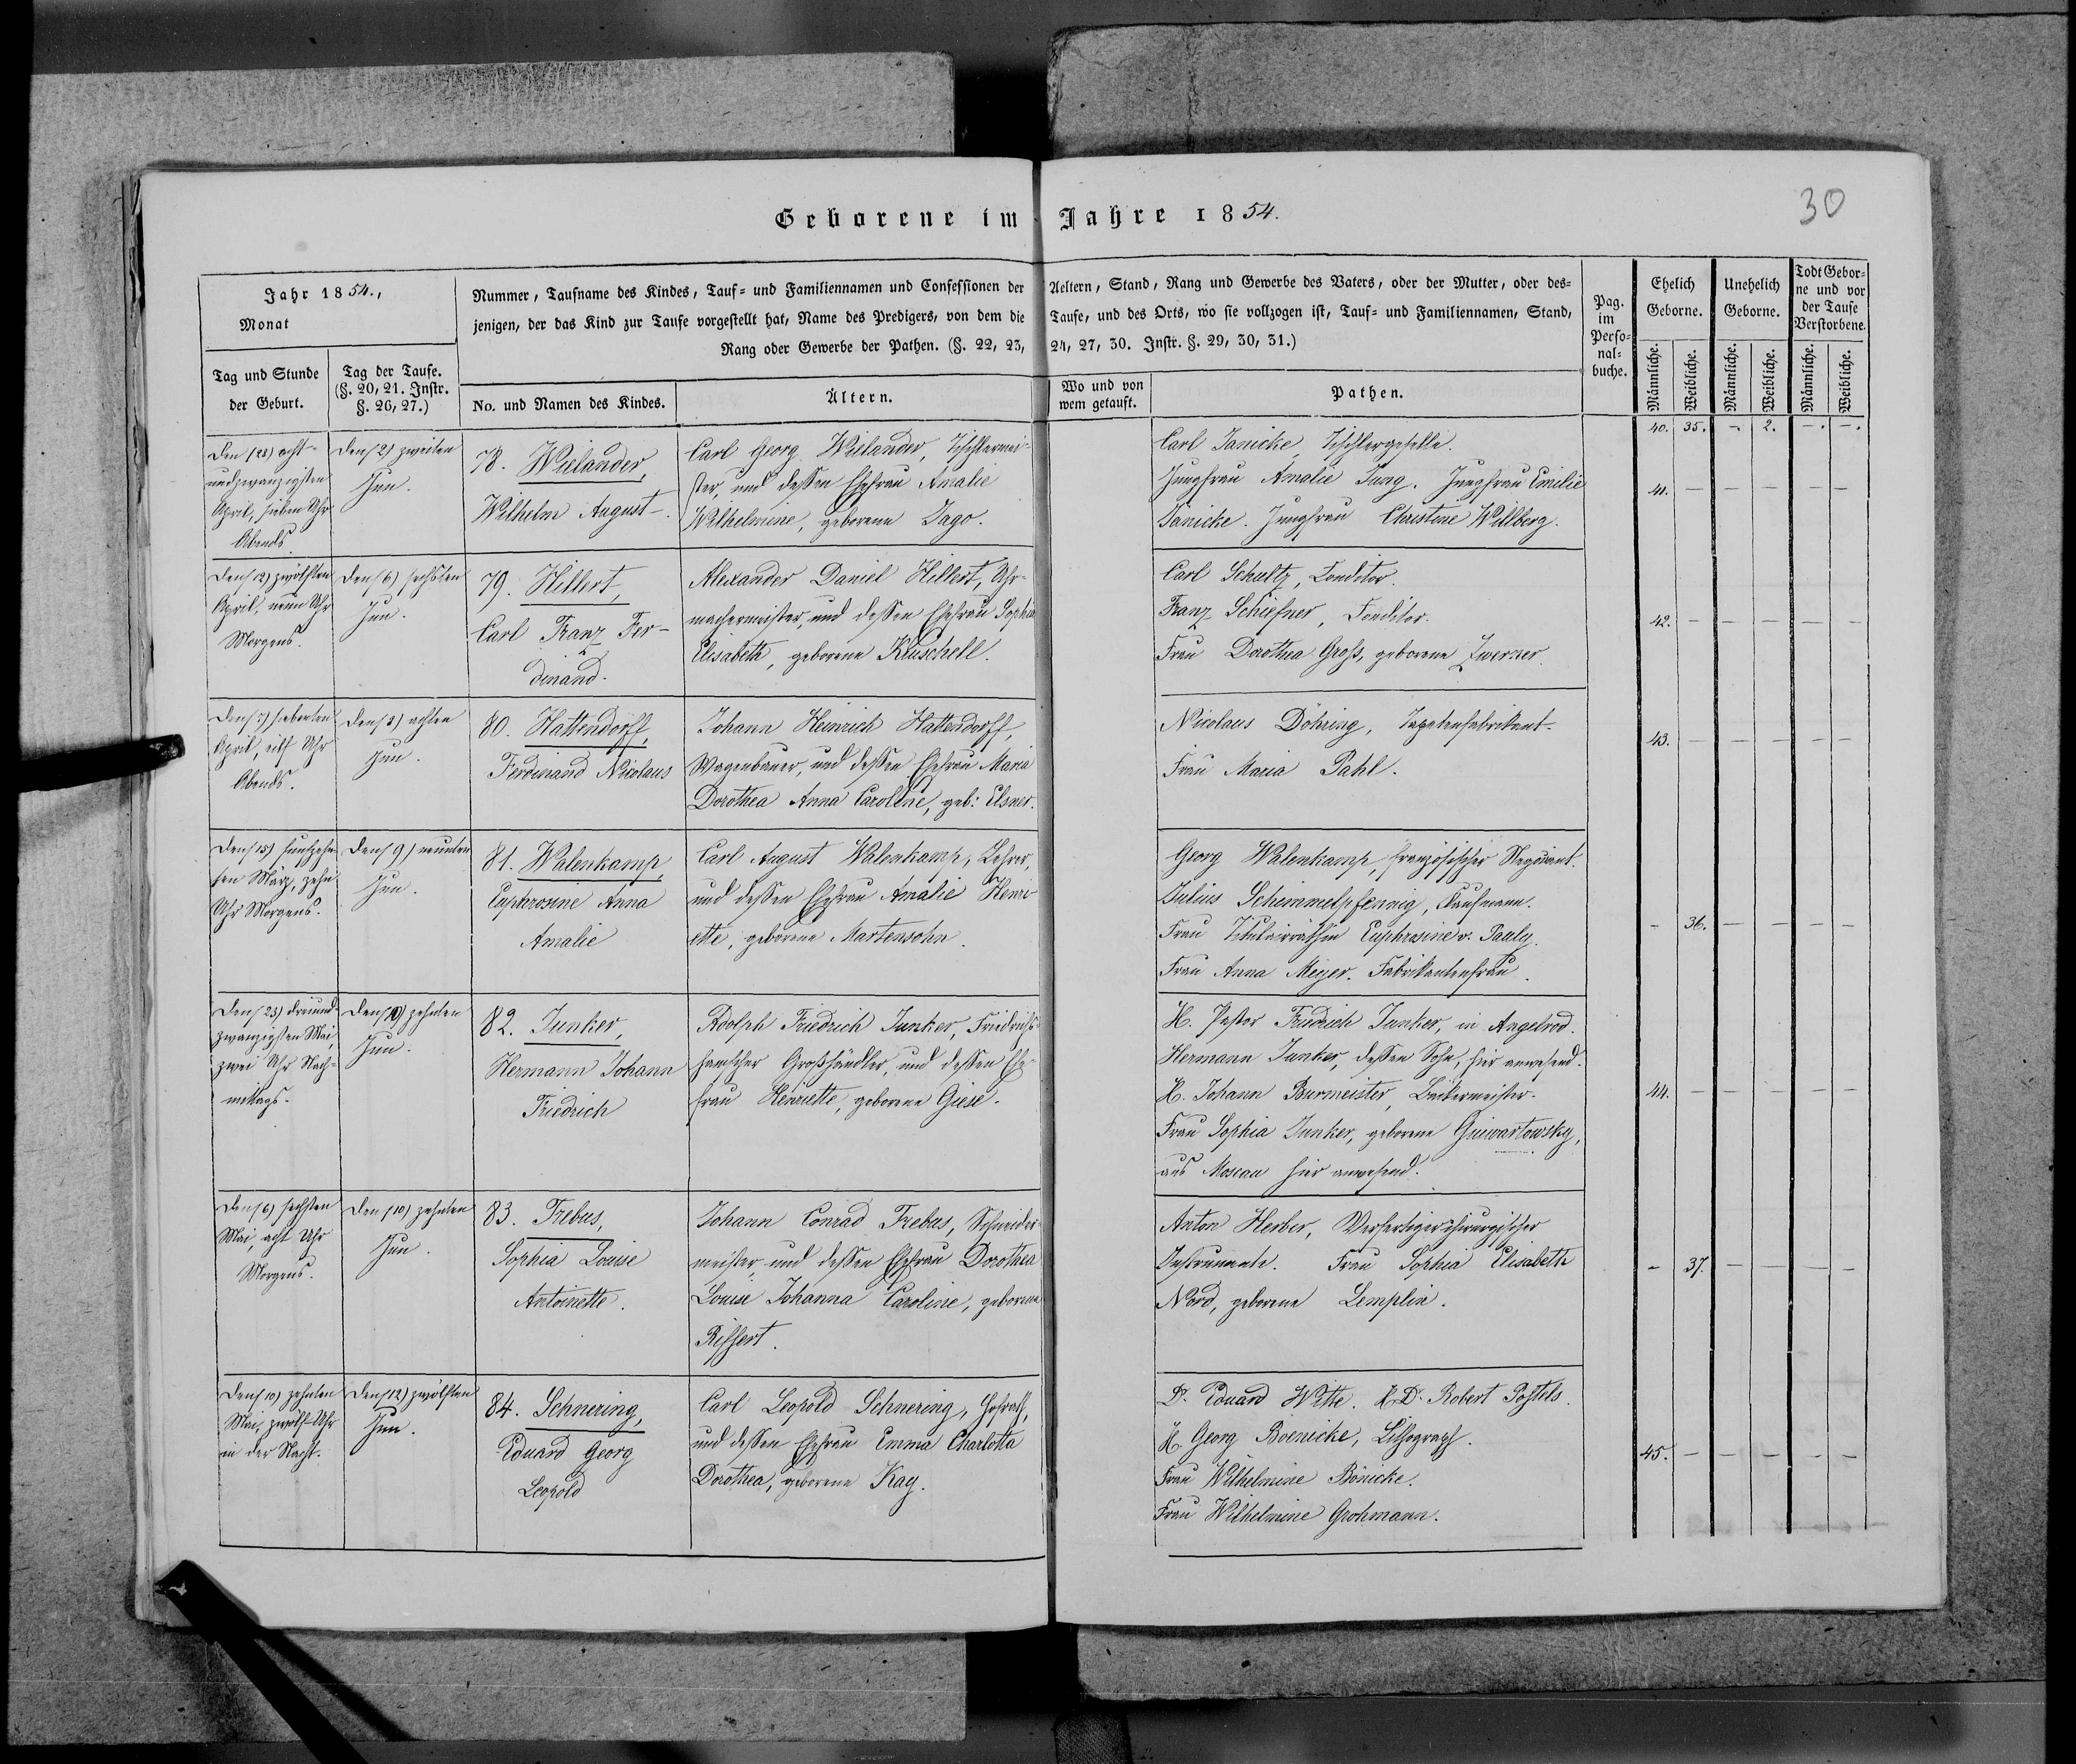 Geborene im Jahre 1854.
30
Jahr 1854.,
Monat
Tag und Stunde
der Geburt.
Tag der Taufe.
(§. 20, 21. Instr.
§. 26, 27.)
Nummer, Taufname des Kindes, Tauf- und Familiennamen und Confessionen der Aeltern, Stand, Rang und Gewerbe des Vaters, oder der Mutter, oder des-
jenigen, der das Kind zur Taufe vorgestellt hat, Name des Predigers, von dem die Taufe, und des Orts, wo sie vollzogen ist, Tauf- und Familiennamen, Stand,
Rang oder Gewerbe der Pathen. (§. 22, 23, 24, 27, 30. Instr. §. 29, 30, 31.)
No. und Namen des Kindes.
Ältern.
Wo und von
wem getauft.
Pathen.
Pag.
im
Perso-
nal-
buche.
Ehelich
Geborne.
Unehelich
Geborne.
Todt Gebor-
ne und vor
der Taufe
Verstorbene.
Männliche.
Weibliche.
Männliche.
Weibliche.
Männliche.
Weibliche.
40. 35. -. 2. -. -.
Den (28) acht-
undzwanzigsten
April, sieben Uhr
Abends.
Den (2) zweiten
Jun.
78. Wielander,
Wilhelm August.
Carl Georg Wielander, Tischlermei-
ster, und dessen Ehefrau Amalie
Wilhelmine, geborene Jago.
Carl Janicke, Tischlergeselle.
Jungfrau Amalie Jung. Jungfrau Emilie
Janicke. Jungfrau Christine Willberg.
41. — — — — —
Den (12) zwölften
April, neun Uhr
Morgens.
Den (6) sechsten
Jun.
79. Hillert,
Carl Franz Fer-
dinand.
Alexander Daniel Hillert, Uhr-
machermeister, und dessen Ehefrau Sophia
Elisabeth, geborene Kluschell.
Carl Schultz, Conditor.
Franz Schiefner, Conditor.
Frau Dorothea Groß, geborene Zwerner.
42. — — — — —
Den (7) siebenten
April, eilf Uhr
Abends.
Den (8) achten
Jun.
80. Hattendorff,
Ferdinand Nicolaus
Johann Heinrich Hattendorff,
Wagenbauer, und dessen Ehefrau Maria
Dorothea Anna Caroline, geb: Elsner.
Nicolaus Döhring, Tapetenfabrikant.
Frau Maria Pahl.
43. — — — — —
Den (15) funfzehn-
ten März, zehn
Uhr Morgens.
Den (9) neunten
Jun.
81. Walenkamp,
Euphrosine Anna
Amalie
Carl August Walenkamp, Lehrer,
und dessen Ehefrau Amalie Henri-
ette, geborene Martensohn.
Georg Walenkamp, französischer Negociant.
Julius Schimmelpfennig, Kaufmann.
Frau Euphrosine v. Pauly.
Frau Anna Meyer. Fabrikantenfrau.
- 36. — — — —
Den (23) dreiund-
zwanzigsten Mai,
zwei Uhr Nach-
mittags.
Den (10) zehnten
Jun.
82. Junker,
Hermann Johann
Friedrich
Adolph Friedrich Junker, Friedrichs-
hamscher Großhändler, und dessen Ehe-
frau Henriette, geborene Giese.
H. Pastor Friedrich Junker, in Angelrod.
Hermann Junker, dessen Sohn, hier anwesend.
H. Johann Burmeister, Bäckermeister.
Frau Sophia Junker, geborene Guiwartowsky,
aus Moscau hier anwesend.
44. — — — — —
Den (6) sechsten
Mai, acht Uhr
Morgens.
Den (10) zehnten
Jun.
83. Trebus,
Sophia Louise
Antoinette.
Johann Conrad Trebus, Schneider-
meister und dessen Ehefrau Dorothea
Louise Johanna Caroline, geborene
Riffert.
Anton Herber, Verfertiger chirurgischer
Instrumente. Frau Sophia Elisabeth
Nord, geborene Lemplin.
- 37. — — — —
Den (10) zehnten
Mai, zwölf Uhr
in der Nacht.
Den (12) zwölften
Jun.
84. Schnering,
Eduard Georg
Leopold
Carl Leopold Schnering, Hofrath,
und dessen Ehefrau Emma Charlotta
Dorothea, geborene Kay.
Dr. Eduard Witte. H. Dr. Robert Postels.
H. Georg Boenicke, Lithograph.
Frau Wilhelmine Bönicke.
Frau Wilhelmine Grohmann.
45. — — — — —